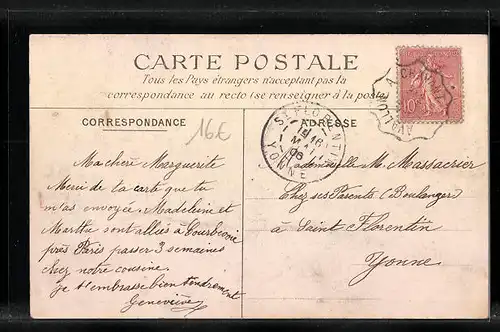 CARTE POSTALE
Tous les Pays étrangers n'acceptant pas la
correspondance au recto (se renseigner à la poste)
CORRESPONDANCE
16€
ADRESSE
Ma chère Marguerite
Merci de la carte que tu
m'as envoyée. Madeleine et
Marthe sont allées à Courbevoie
près Paris passer 3 semaines
chez notre cousine.
Je t'embrasse bien tendrement
Geneviève
Mademoiselle M. Massacrier
Chez ses Parents (Boulanger)
à Saint Florentin
Yonne
ST FLORENTIN
16
MAI
06
YONNE
10
AVALLON A